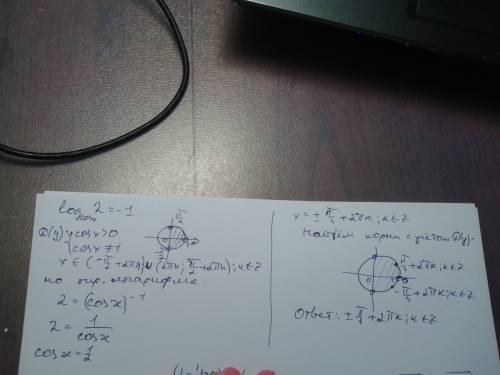 log_cosx 2 = -1
D(y): { cosx > 0
cosx ≠ 1
x ∈ (-π/2 + 2πk; 2πk) ∪ (2πk; π/2 + 2πk); k ∈ Z
по опр. логарифма:
2 = (cosx)^-1
2 = 1/cosx
cosx = 1/2
π/2
0
x = ± π/3 + 2πk; k ∈ Z
Найдём корни с учётом D(y):
π/3 + 2πk; k ∈ Z
0
-π/3 + 2πk; k ∈ Z
Ответ: ± π/3 + 2πk; k ∈ Z